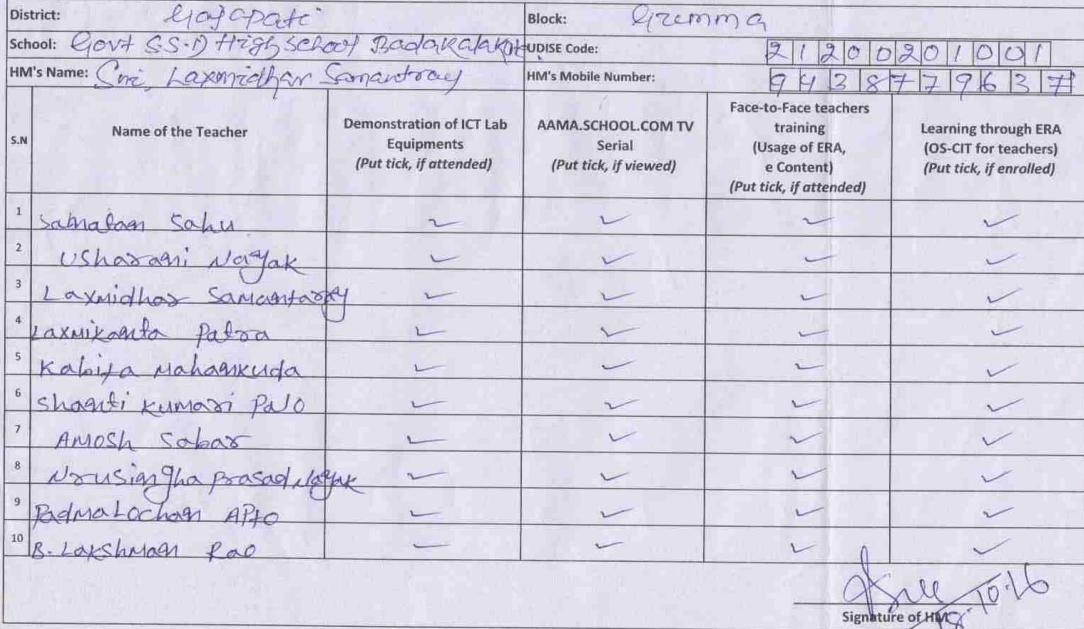 District: Gajapati Block: Gumma
School: Govt SS.D High School Badakalakot UDISE Code: 21200201001
HM's Name: Sri, Laxmidhar Samantray HM's Mobile Number: 9438779637
S.N Name of the Teacher Demonstration of ICT Lab Equipments (Put tick, if attended) AAMA.SCHOOL.COM TV Serial (Put tick, if viewed) Face-to-Face teachers training (Usage of ERA, e Content) (Put tick, if attended) Learning through ERA (OS-CIT for teachers) (Put tick, if enrolled)
1 Sanatan Sahu ✓ ✓ ✓ ✓
2 Usharani Nayak ✓ ✓ ✓ ✓
3 Laxmidhar Samantaray ✓ ✓ ✓ ✓
4 Laxmikanta Patra ✓ ✓ ✓ ✓
5 Kabita Mahankuda ✓ ✓ ✓ ✓
6 Shanti Kumari Palo ✓ ✓ ✓ ✓
7 AMOSH Sabar ✓ ✓ ✓ ✓
8 Nrusingha prasad Nayak ✓ ✓ ✓ ✓
9 Padmalochan APto ✓ ✓ ✓ ✓
10 B. Lakshman Rao ✓ ✓ ✓ ✓
18.10.16
Signature of HM